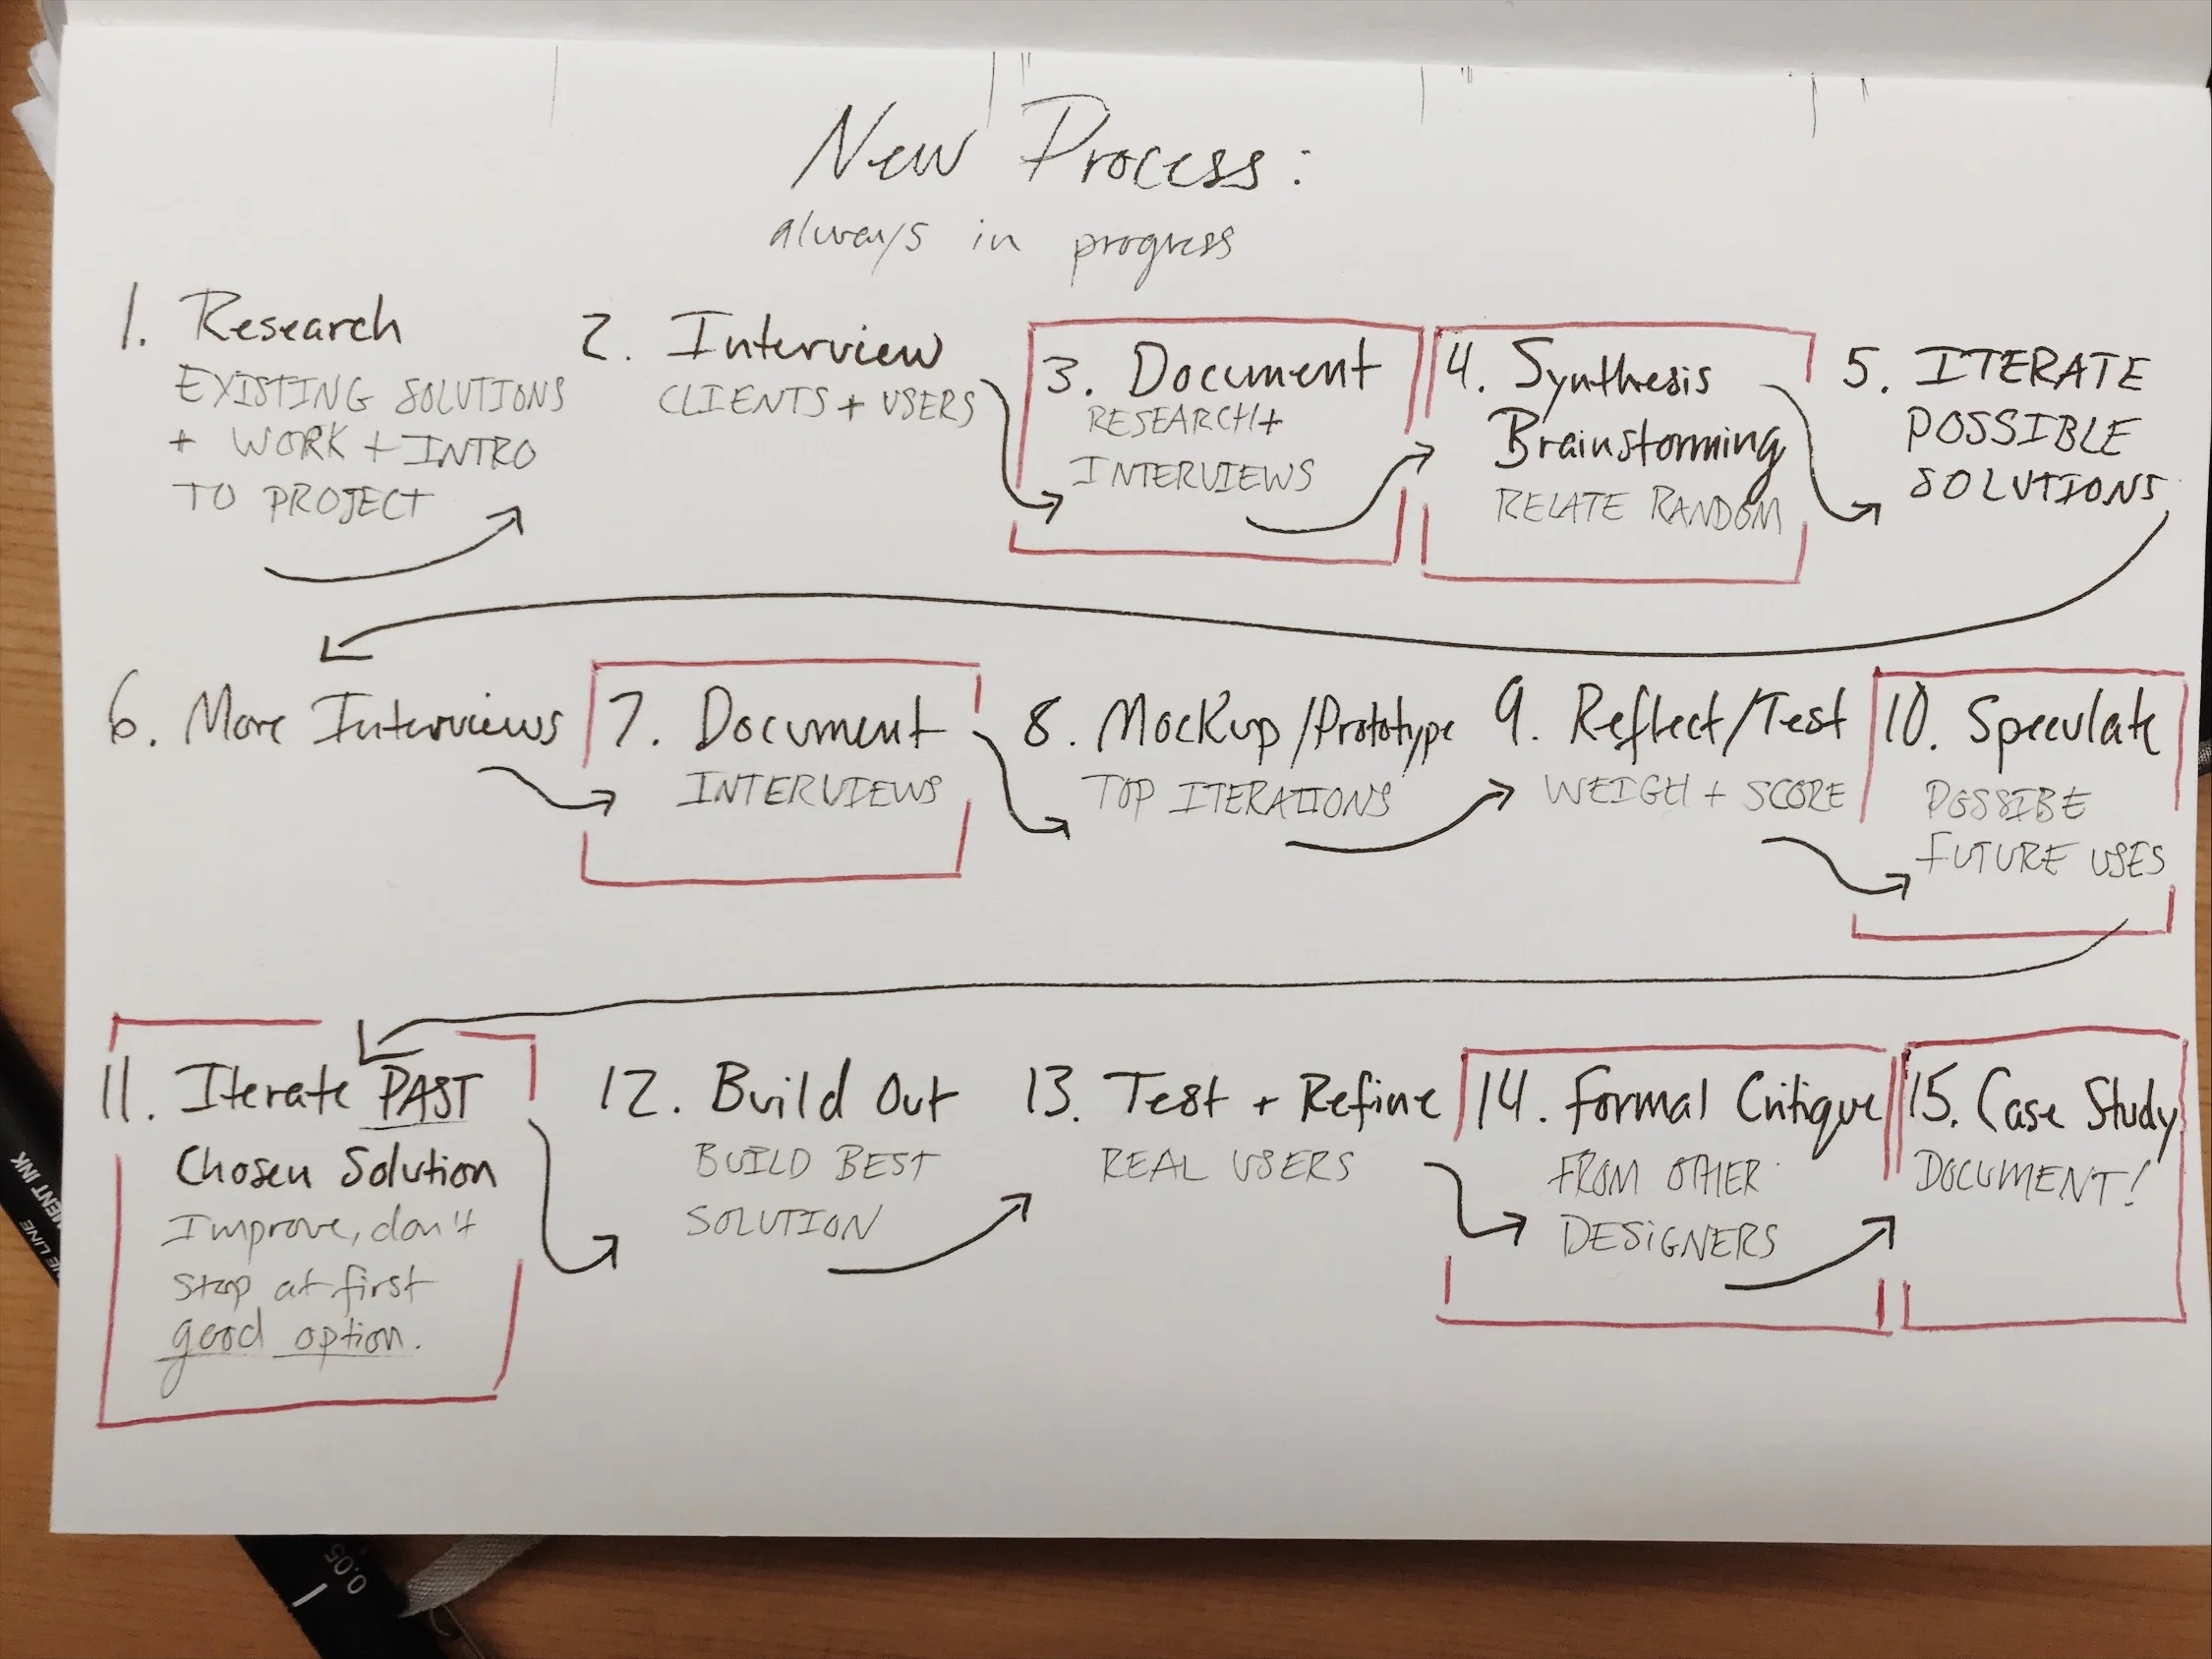 New Process:
always in progress
1. Research
EXISTING SOLUTIONS
+ WORK + INTRO
TO PROJECT
2. Interview
CLIENTS + USERS
3. Document
RESEARCH +
INTERVIEWS
4. Synthesis
Brainstorming
RELATE RANDOM
5. ITERATE
POSSIBLE
SOLUTIONS
6. More Interviews
7. Document
INTERVIEWS
8. Mockup/Prototype
TOP ITERATIONS
9. Reflect/Test
WEIGH + SCORE
10. Speculate
POSSIBE
FUTURE USES
11. Iterate PAST
Chosen Solution
Improve, don't
stop at first
good option.
12. Build Out
BUILD BEST
SOLUTION
13. Test + Refine
REAL USERS
14. Formal Critique
FROM OTHER
DESIGNERS
15. Case Study
DOCUMENT!
MENT INK
NE LINE
0.05